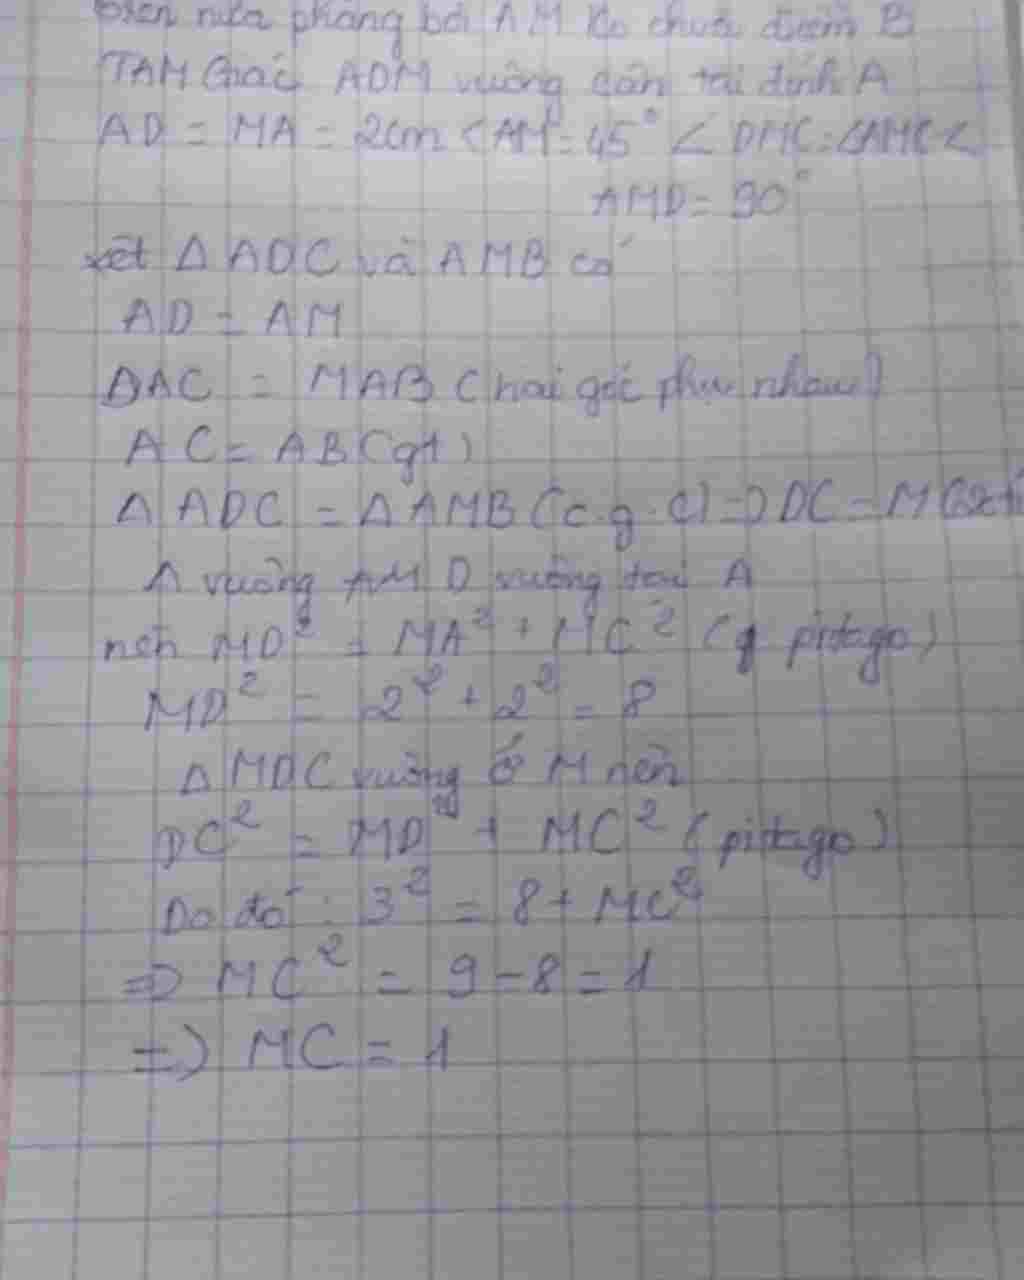 trên nửa phẳng bờ AM ko chứa điểm B
TAM Giác ADM vuông cân tại đỉnh A
AD = MA = 2cm < AM = 45° ∠ DMC = ∠AMC <
AMD = 90°
xét Δ ADC và AMB có
AD = AM
DAC = MAB (hai góc phụ nhau)
AC = AB (gt)
Δ ADC = Δ AMB (c.g.c) => DC = M
Δ vuông AMD vuông tại A
nên MD² = MA² + MC² ( pitago)
MD² = 2² + 2² = 8
Δ MDC vuông ở M nên
DC² = MD² + MC² (pitago)
Do đó : 3² = 8 + MC²
=> MC² = 9 - 8 = 1
=> MC = 1